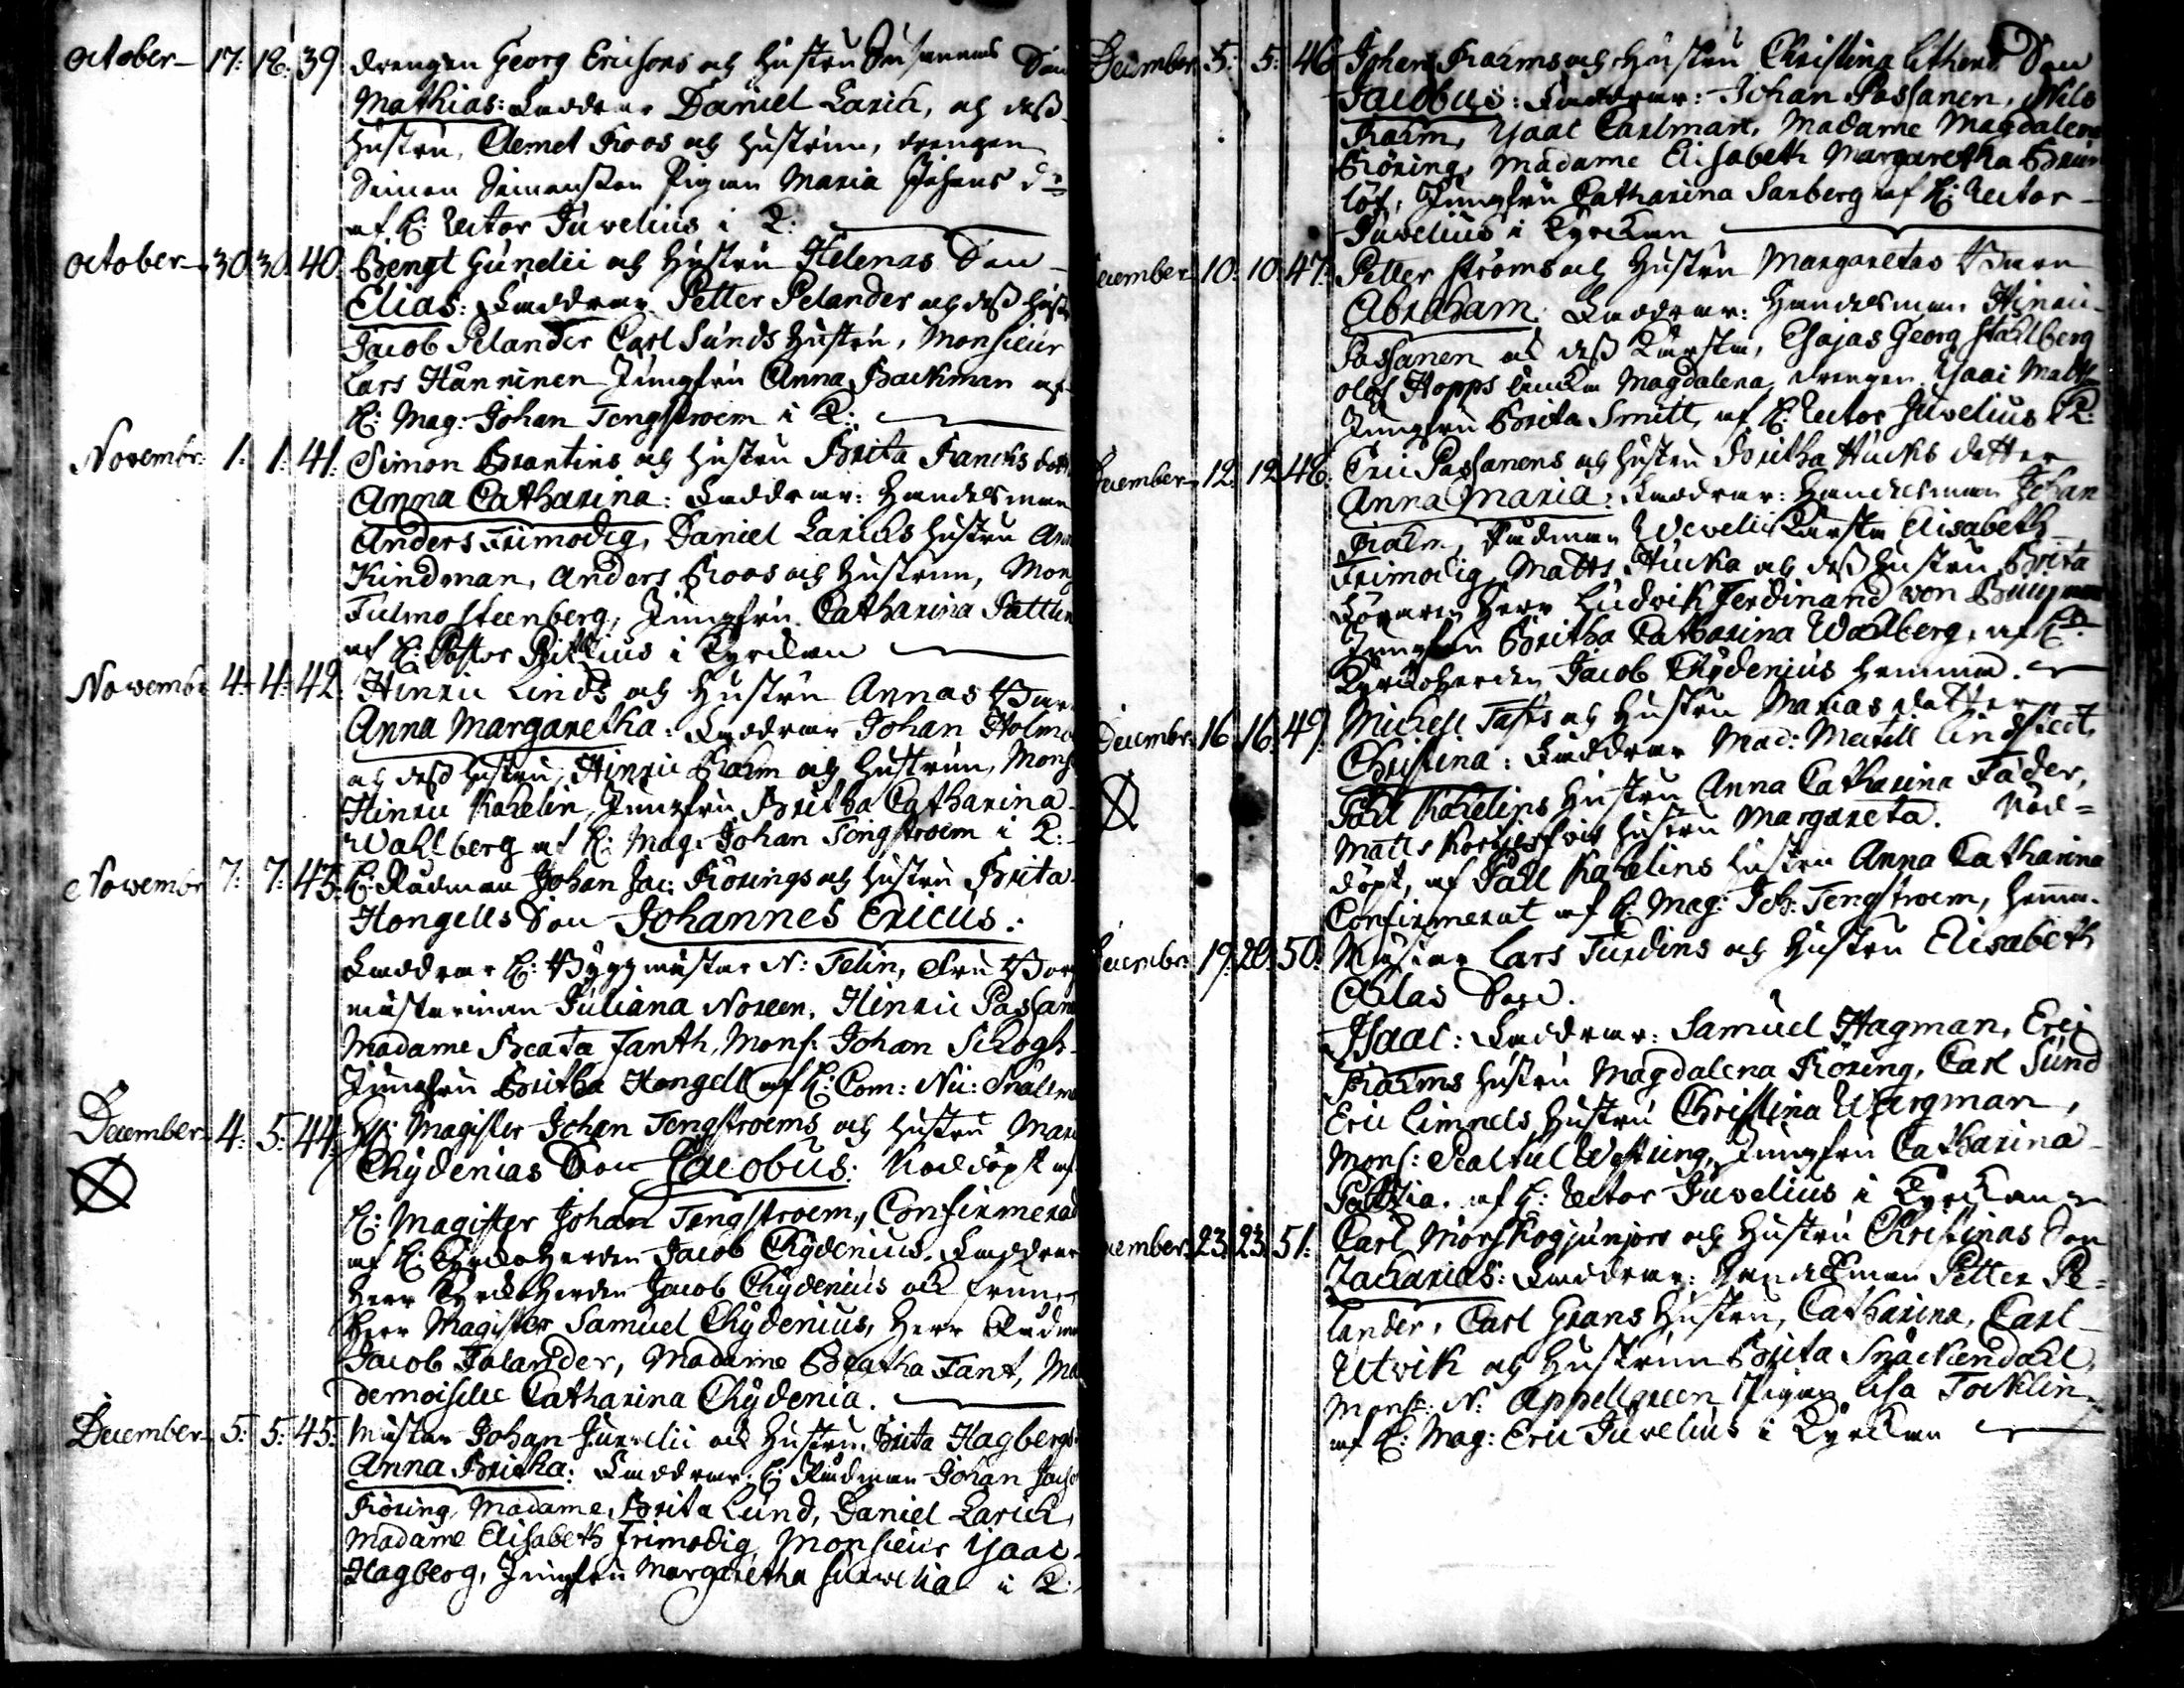 October 17: 18: 39 drengen Georg Ericsons och Hustru Susannas Son
Mathias: Faddrar Daniel Larich, och deß
Hustru, Clemet Roos och Hustrun, drengen
Simon Simonsson Pigan Maria Johans dr
af H: Rector Juvelius i K:
October 30 30. 40. Bengt Gundeli och Hustru Helenas Son
Elias: Faddrar Petter Pelander och deß Hust
Jacob Pelander Carl Sunds Hustru, Monsieur
Lars Hänninen Jungfru Anna Backman af
H: Mag: Johan Tengstroem i K:
Novembr: 1: 1: 41. Simon Brantins och Hustru Brita Francks dott
Anna Catharina: Faddrar: Handelsman
Anders Frimodig, Daniel Larichs Hustru Ann
Kindman, Anders Roos och Hustrun, Mons
Steenberg, Jungfru Catharina
af H: Pastor i Kyrckan
Novembr 4: 4: 42. Hinric Linds och Hustru Annas Barn
Anna Margaretha: Faddrar Johan Holm
och deß Hustru, Hinric Brahm och Hustrun, Mons
Hinric Kahelin, Jungfru Britha Catharina
Wahlberg af H: Mag: Johan Tengstroem i K:
Novembr 7: 7: 43. H: Rådman Johan Jac: Rörings och Hustru Brita
Hongells Son Johannes Ericus:
Faddrar H: Byggmästar N: Telin, Fru Borg
mästarinnan Juliana Noreen, Hinric Passan
Madame Beata Fanth, Mons: Johan Skogh
Jungfru Britha Hongell af H: Com: Nic: Snällm
December 4: 5: 44. H: Magister Johan Tengstroems och Hustru Mari
Chydenias Son Jacobus: Nöddöpt af
H: Magister Johan Tengstroem, Confirmerad
af H: Kyrckoherden Jacob Chydenius. Faddrar
Herr Kyrckoherden Jacob Chydenius och Frun
Herr Magister Samuel Chydenius, Herr Rådm
Jacob Falander, Madame Beatha Fant, Ma
demoiselle Catharina Chydenia.
December 5: 5: 45. Mästar Johan Juvelii och Hustru Brita Hagbergs
Anna Britha: Faddrar: H: Rådman Johan Jacob
Röring, Madame Brita Lund, Daniel Larich,
Madame Elisabeth Frimodig, Monsieur Isaac
Hagberg, Jungfru Margaretha i K:
December 5: 5: 46 Johan Brahms och Hustru Christina Son
Jacobus: Faddrar: Johan Passanen, Nils
Brahm, Isaac Carlman, Madame Magdalena
Röring, Madame Elisabeth Margaretha
löf, Jungfru Catharina Sanberg af H: Rector
Juvelius i Kyrckan
December 10: 10: 47: Petter Ströms och Hustru Margaretas Barn
Abraham: Faddrar: Handelsman Hinric
Passanen och deß Kärsta, Esajas Georg Stahlberg
Olof Hopps Magdalena, drengen Isaac Matts
Jungfru Brita Smitt, af H: Rector Juvelius i K:
December 12: 12 48. Eric Passanens och Hustru Britha Hucks dotter
Anna Maria: Faddrar: Handelsman Johan
Brahm, Rådman Kärsta Elisabeth
Frimodig, Matts Hucka och deß Hustru Brita
Herr Ludvik Ferdinand von
Jungfru Britha Catharina Wahlberg, af H:
Kyrckoherden Jacob Chydenius hemma.
Decembr: 16 16: 49: Michell Tafts och Hustru Marias dotter
Christina: Faddrar Mad: Lindstedt,
Pall Kahelins Hustru Anna Catharina Fader,
Matts Hustru Margareta. Nöd=
döpt, af Pall Kahelins Hustru Anna Catharina
Confirmerat af H: Mag: Joh: Tengstroem, hemma.
Decembr: 19: 20: 50: Mästar Lars Turdins och Hustru Elisabeth
Son.
Isaac: Faddrar: Samuel Hagman, Eric
Brahms Hustru Magdalena Röring, Carl Sund
Eric Limnels Hustru Christina Wargman,
Mons: Jungfru Catharina
af H: Rector Juvelius i Kyrckan
December 23. 23. 51: Carl Morskog junjors och Hustru Christinas Son
Zacharias: Faddrar: Handelsman Petter Pe=
lander, Carl Grans Hustru, Catharina, Carl
Utvik och Hustrun Brita Snäckendahl,
Mons: N: Appellgreen Pigan Lisa Tocklin,
af H: Mag: Eric Juvelius i Kyrckan